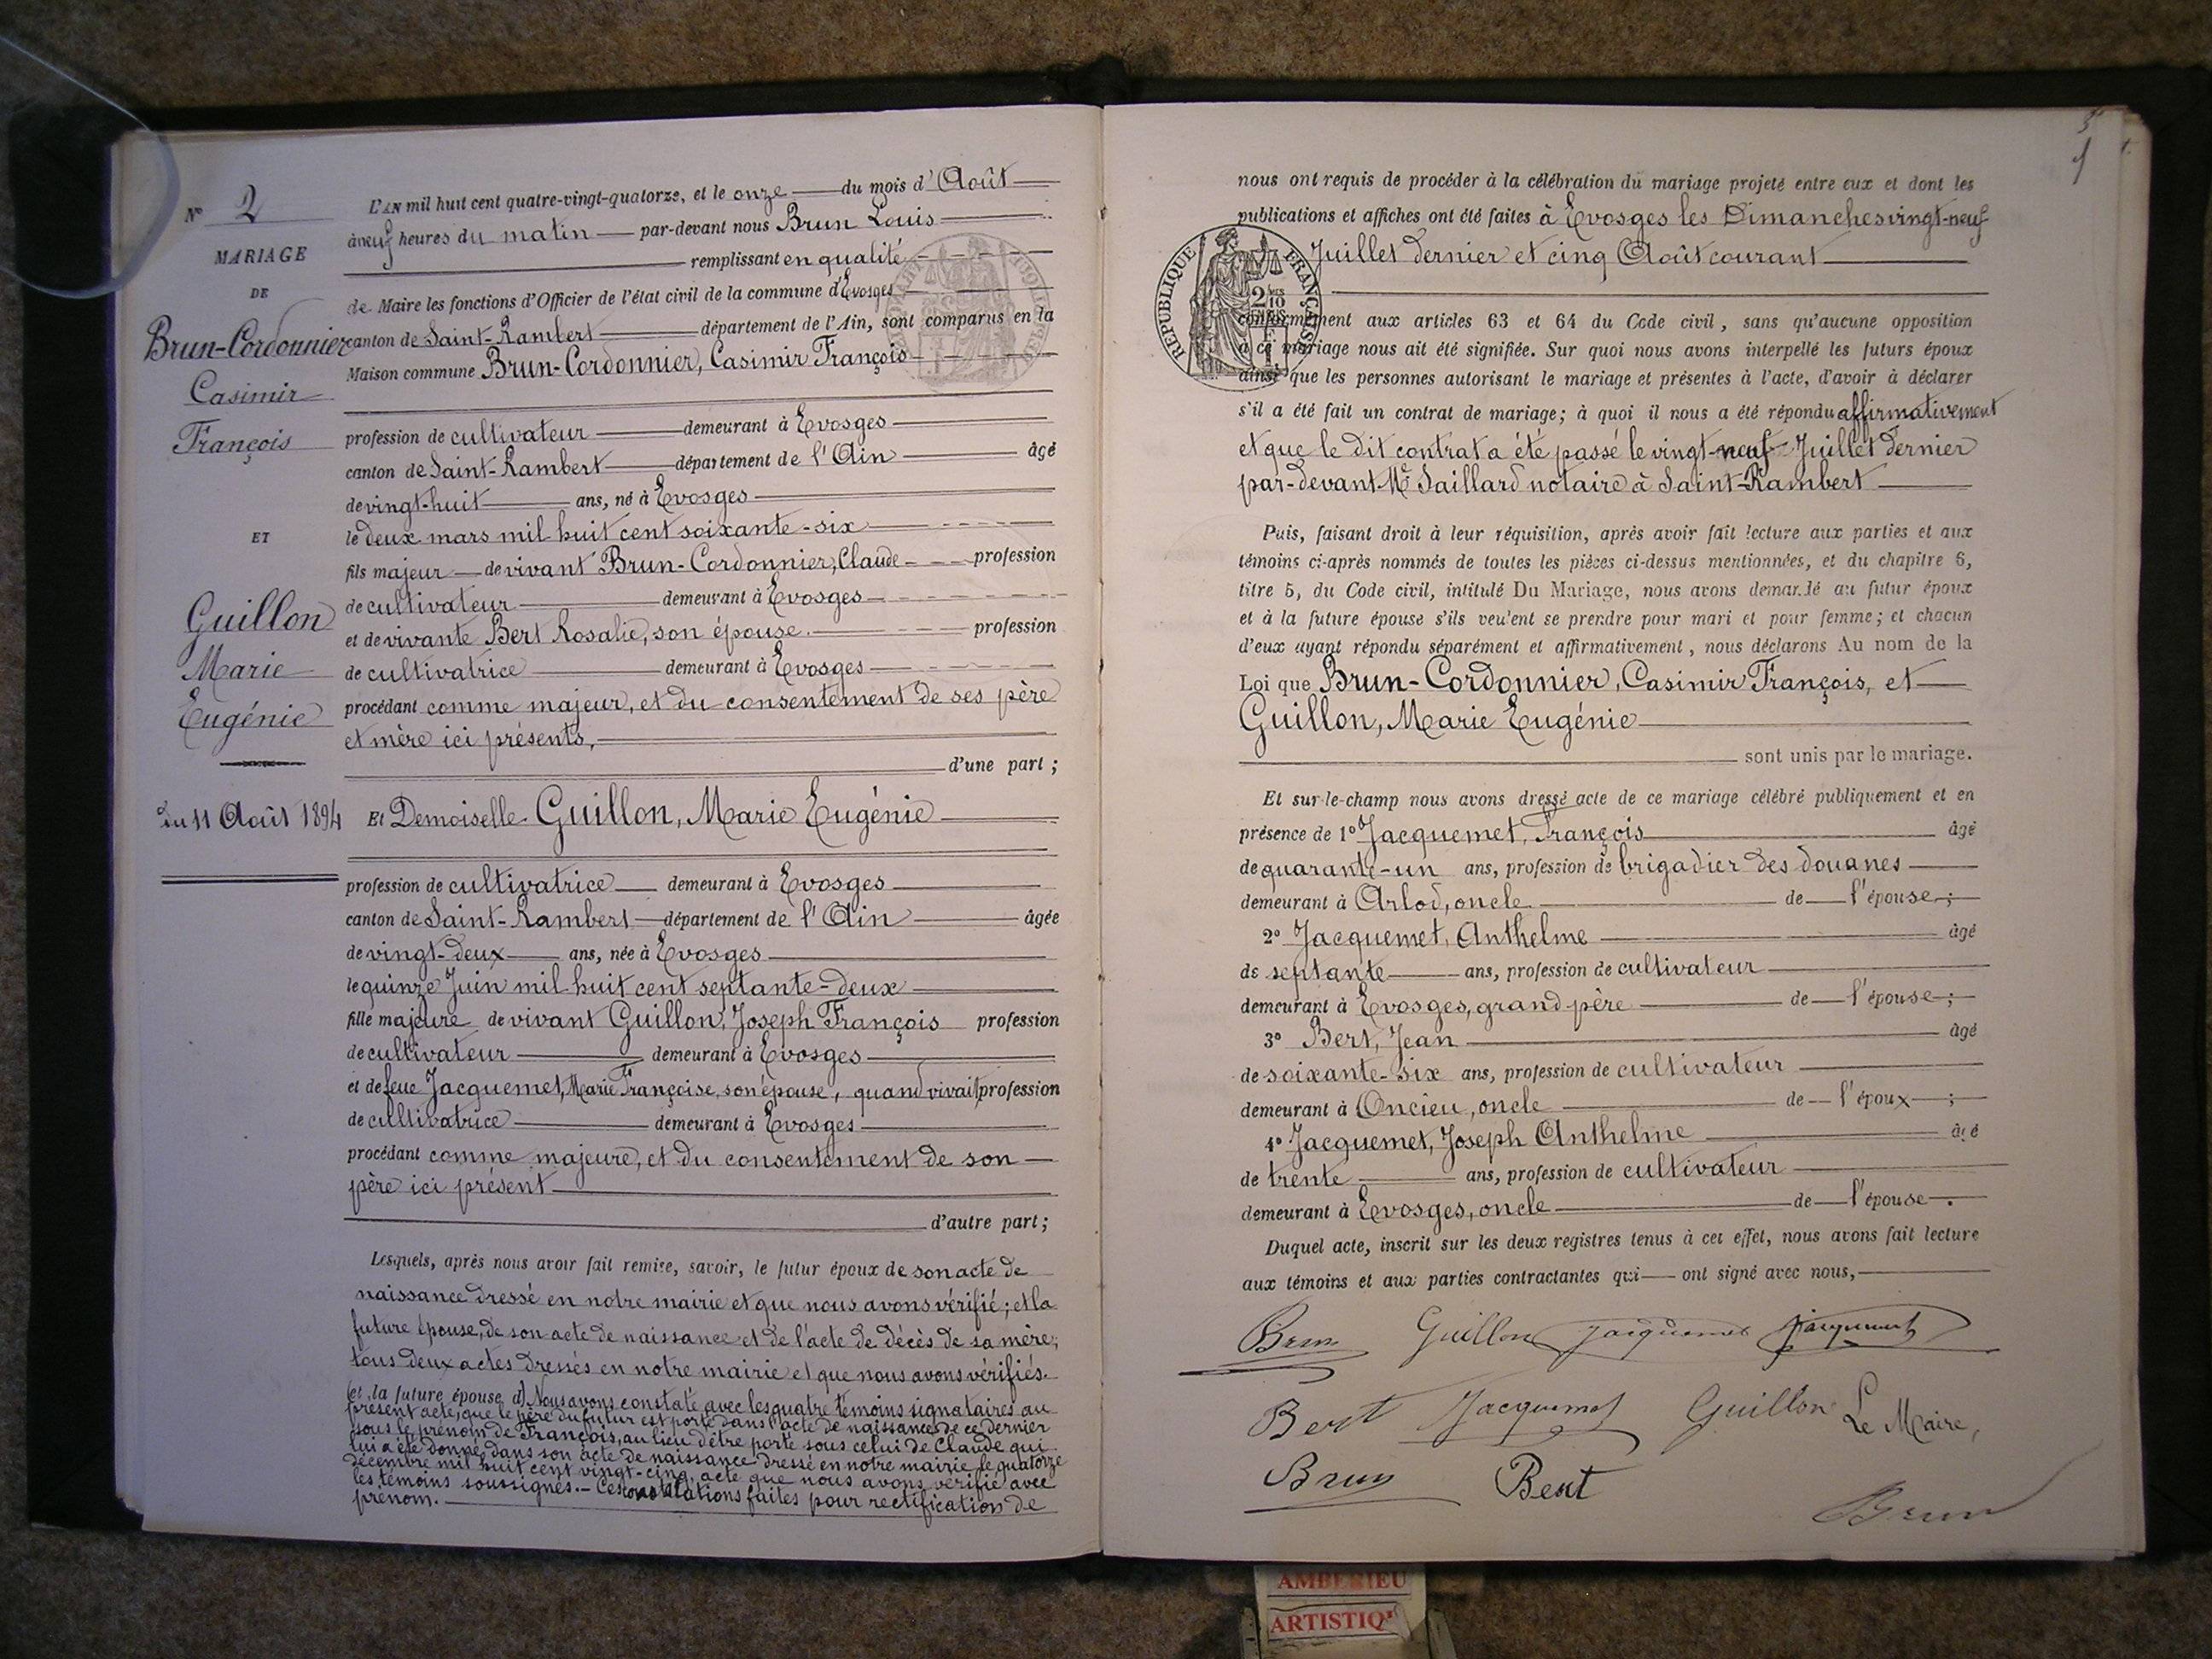 N° 2
MARIAGE
DE
Brun-Cordonnier
Casimir
François
ET
Guillon
Marie
Eugénie
du 11 Août 1894
L'AN mil huit cent quatre-vingt-quatorze, et le onze du mois d'Août
à neuf heures du matin par-devant nous Brun Louis
remplissant en qualité
de Maire les fonctions d'Officier de l'état civil de la commune d'Evosges
canton de Saint-Rambert département de l'Ain, sont comparus en la
Maison commune Brun-Cordonnier, Casimir François
profession de cultivateur demeurant à Evosges
canton de Saint-Rambert département de l'Ain âgé
de vingt-huit ans, né à Evosges
le deux mars mil huit cent soixante-six
fils majeur de vivant Brun-Cordonnier, Claude profession
de cultivateur demeurant à Evosges
et de vivante Bert Rosalie, son épouse. profession
de cultivatrice demeurant à Evosges
procédant comme majeur, et du consentement de ses père
et mère ici présents,
d'une part ;
Et Demoiselle Guillon, Marie Eugénie
profession de cultivatrice demeurant à Evosges
canton de Saint-Rambert département de l'Ain âgée
de vingt-deux ans, née à Evosges
le quinze Juin mil huit cent septante-deux
fille majeure de vivant Guillon, Joseph François profession
de cultivateur demeurant à Evosges
et de feue Jacquemet, Marie Françoise, son épouse, quand vivait profession
de cultivatrice demeurant à Evosges
procédant comme majeure, et du consentement de son
père ici présent
d'autre part ;
Lesquels, après nous avoir fait remise, savoir, le futur époux de son acte de
naissance dressé en notre mairie et que nous avons vérifié ; et la
future épouse, de son acte de naissance et de l'acte de décès de sa mère,
tous deux actes dressés en notre mairie et que nous avons vérifiés.
(et la future épouse d) Nous avons constaté avec les quatre témoins signataires au
présent acte, que le père du futur est porté dans l'acte de naissance de ce dernier
sous le prénom de François, au lieu d'être porté sous celui de Claude qui
lui a été donné dans son acte de naissance dressé en notre mairie le quatorze
décembre mil huit cent vingt-cinq, acte que nous avons vérifié avec
les témoins soussignés. - Ces constatations faites pour rectification de
prénom.
5
nous ont requis de procéder à la célébration du mariage projeté entre eux et dont les
publications et affiches ont été faites à Evosges les Dimanches vingt-neuf
Juillet dernier et cinq Août courant
RÉPUBLIQUE FRANÇAISE
conformément aux articles 63 et 64 du Code civil, sans qu'aucune opposition
à ce mariage nous ait été signifiée. Sur quoi nous avons interpellé les futurs époux
ainsi que les personnes autorisant le mariage et présentes à l'acte, d'avoir à déclarer
s'il a été fait un contrat de mariage ; à quoi il nous a été répondu affirmativement
et que le dit contrat a été passé le vingt-neuf Juillet dernier
par-devant Me Saillard notaire à Saint-Rambert
Puis, faisant droit à leur réquisition, après avoir fait lecture aux parties et aux
témoins ci-après nommés de toutes les pièces ci-dessus mentionnées, et du chapitre 6,
titre 5, du Code civil, intitulé Du Mariage, nous avons demandé au futur époux
et à la future épouse s'ils veulent se prendre pour mari et pour femme ; et chacun
d'eux ayant répondu séparément et affirmativement, nous déclarons Au nom de la
Loi que Brun-Cordonnier, Casimir François, et
Guillon, Marie Eugénie
sont unis par le mariage.
Et sur-le-champ nous avons dressé acte de ce mariage célébré publiquement et en
présence de 1° Jacquemet, François âgé
de quarante-un ans, profession de brigadier des douanes
demeurant à Arlod, oncle de l'épouse ;
2° Jacquemet, Anthelme âgé
de septante ans, profession de cultivateur
demeurant à Evosges, grand-père de l'épouse ;
3° Bert, Jean âgé
de soixante-six ans, profession de cultivateur
demeurant à Oncieu, oncle de l'époux ;
4° Jacquemet, Joseph Anthelme âgé
de trente ans, profession de cultivateur
demeurant à Evosges, oncle de l'épouse.
Duquel acte, inscrit sur les deux registres tenus à cet effet, nous avons fait lecture
aux témoins et aux parties contractantes qui ont signé avec nous,
Brun Guillon Jacquemet Jacquemet
Bert Jacquemet Guillon Le Maire,
Brun Bert Brun
AMBERIEU
ARTISTIQ